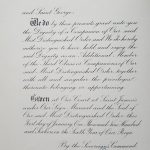 and Saint George.
We do by these presents grant unto you
the Dignity of a Companion of Our said
Most Distinguished Order and We do hereby
authorise you to have hold and enjoy the
said Dignity as an Additional Member of
the Third Class or Companions of Our said
Most Distinguished Order together
with all and singular the privileges
thereunto belonging or appertaining.
Given at Our Court at Saint James's
under Our Sign Manual and the Seal of
Our said Most Distinguished Order this
day of One thousand nine hundred
and in the Year of Our Reign.
By the Sovereign's Command.